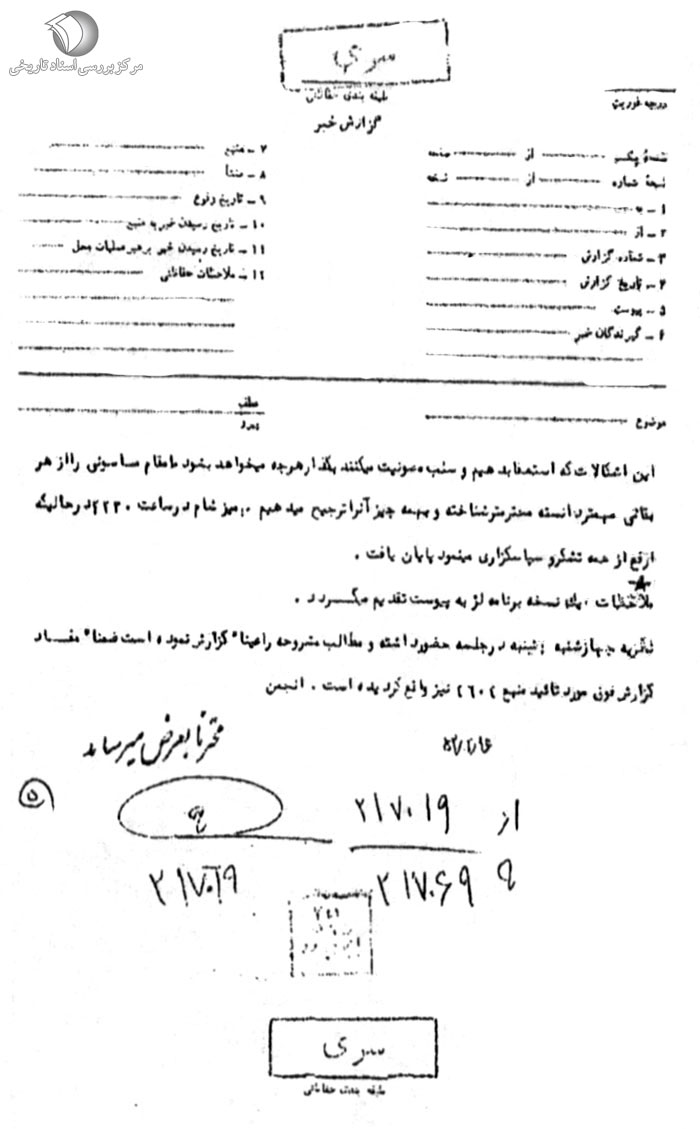 مرکز بررسی اسناد تاریخی
سری
طبقه بندی حفاظتی
گزارش خبر
درجه فوریت
صفحه از
نسخه شماره از نسخه
۱ - به
۲ - از
۳ - شماره گزارش
۴ - تاریخ گزارش
۵ - پیوست
۶ - گیرندگان خبر
۷ - منبع
۸ - منشأ
۹ - تاریخ وقوع
۱۰ - تاریخ رسیدن خبر به منبع
۱۱ - تاریخ رسیدن خبر به رهبر عملیات محل
۱۲ - ملاحظات حفاظتی
موضوع
عطف
پیرو
این اشکالات که استعفا بدهیم و سلب مصونیت میکنند بگذار هرچه میخواهد بشود ما مقام ماسونی را از هر
مقامی مهمتر دانسته محترمتر شناخته و بهمه چیز آنرا ترجیح میدهیم میز شام در ساعت ۲۲۳۰ درحالیکه
ارفع از همه تشکر و سپاسگزاری مینمود پایان یافت .
ملاحظات یک نسخه برنامه لژ به پیوست تقدیم میگردد .
نظریه چهارشنبه شنبه در جلسه حضور داشته و مطالب مشروحه را عیناً گزارش نموده است ضمناً مفاد
گزارش فوق مورد تائید منبع نیز واقع گردیده است . انجمن
محترماً بعرض میرساند
۵
از ۲۱۷۰۱۹
۲۱۷۰۶۹
۲۱۷۰۱۹
سری
طبقه بندی حفاظتی